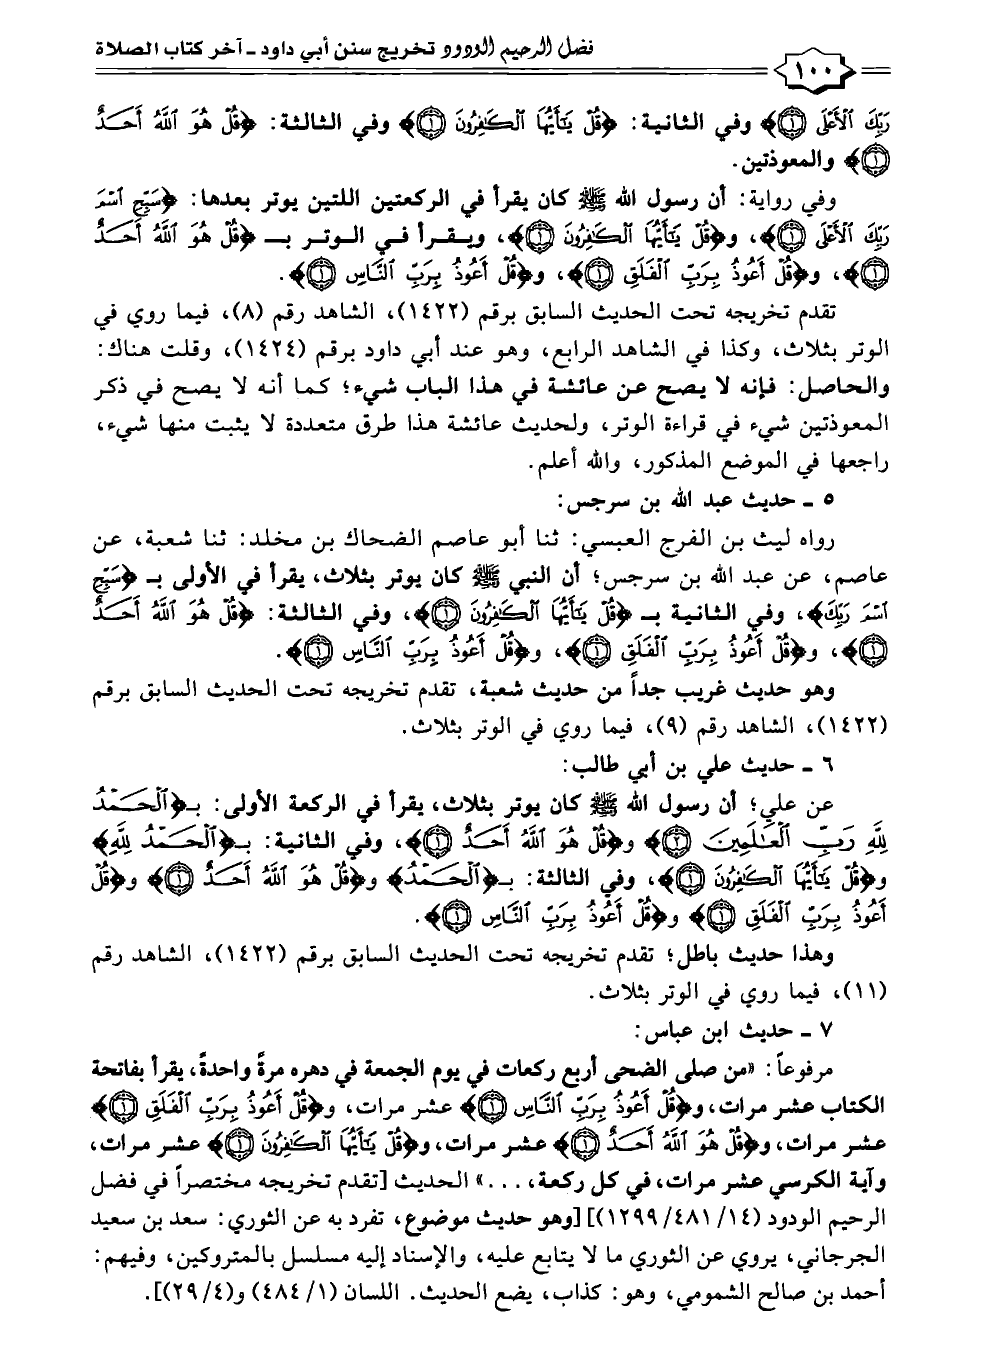 فضل الرحيم الودود تخريج سنن أبي داود ـ آخر كتاب الصلاة
١٠٠
رَبِّكَ ٱلْأَعْلَى ۝١﴾ وفي الثانية: ﴿قُلْ يَٰٓأَيُّهَا ٱلْكَٰفِرُونَ ۝١﴾ وفي الثالثة: ﴿قُلْ هُوَ ٱللَّهُ أَحَدٌ
۝١﴾ والمعوذتين.
وفي رواية: أن رسول الله ﷺ كان يقرأ في الركعتين اللتين يوتر بعدها: ﴿سَبِّحِ ٱسْمَ
رَبِّكَ ٱلْأَعْلَى ۝١﴾، و﴿قُلْ يَٰٓأَيُّهَا ٱلْكَٰفِرُونَ ۝١﴾، ويـقـرأ فـي الـوتـر بـ ﴿قُلْ هُوَ ٱللَّهُ أَحَدٌ
۝١﴾، و﴿قُلْ أَعُوذُ بِرَبِّ ٱلْفَلَقِ ۝١﴾، و﴿قُلْ أَعُوذُ بِرَبِّ ٱلنَّاسِ ۝١﴾.
تقدم تخريجه تحت الحديث السابق برقم (١٤٢٢)، الشاهد رقم (٨)، فيما روي في
الوتر بثلاث، وكذا في الشاهد الرابع، وهو عند أبي داود برقم (١٤٢٤)، وقلت هناك:
والحاصل: فإنه لا يصح عن عائشة في هذا الباب شيء؛ كما أنه لا يصح في ذكر
المعوذتين شيء في قراءة الوتر، ولحديث عائشة هذا طرق متعددة لا يثبت منها شيء،
راجعها في الموضع المذكور، والله أعلم.
٥ ـ حديث عبد الله بن سرجس:
رواه ليث بن الفرج العبسي: ثنا أبو عاصم الضحاك بن مخلد: ثنا شعبة، عن
عاصم، عن عبد الله بن سرجس؛ أن النبي ﷺ كان يوتر بثلاث، يقرأ في الأولى بـ ﴿سَبِّحِ
ٱسْمَ رَبِّكَ﴾، وفي الثانية بـ ﴿قُلْ يَٰٓأَيُّهَا ٱلْكَٰفِرُونَ ۝١﴾، وفي الثالثة: ﴿قُلْ هُوَ ٱللَّهُ أَحَدٌ
۝١﴾، و﴿قُلْ أَعُوذُ بِرَبِّ ٱلْفَلَقِ ۝١﴾، و﴿قُلْ أَعُوذُ بِرَبِّ ٱلنَّاسِ ۝١﴾.
وهو حديث غريب جداً من حديث شعبة، تقدم تخريجه تحت الحديث السابق برقم
(١٤٢٢)، الشاهد رقم (٩)، فيما روي في الوتر بثلاث.
٦ ـ حديث علي بن أبي طالب:
عن علي؛ أن رسول الله ﷺ كان يوتر بثلاث، يقرأ في الركعة الأولى: بـ﴿ٱلْحَمْدُ
لِلَّهِ رَبِّ ٱلْعَٰلَمِينَ ۝٢﴾ و﴿قُلْ هُوَ ٱللَّهُ أَحَدٌ ۝١﴾، وفي الثانية: بـ﴿ٱلْحَمْدُ لِلَّهِ﴾
و﴿قُلْ يَٰٓأَيُّهَا ٱلْكَٰفِرُونَ ۝١﴾، وفي الثالثة: بـ﴿ٱلْحَمْدُ﴾ و﴿قُلْ هُوَ ٱللَّهُ أَحَدٌ ۝١﴾ و﴿قُلْ
أَعُوذُ بِرَبِّ ٱلْفَلَقِ ۝١﴾ و﴿قُلْ أَعُوذُ بِرَبِّ ٱلنَّاسِ ۝١﴾.
وهذا حديث باطل؛ تقدم تخريجه تحت الحديث السابق برقم (١٤٢٢)، الشاهد رقم
(١١)، فيما روي في الوتر بثلاث.
٧ ـ حديث ابن عباس:
مرفوعاً: «من صلى الضحى أربع ركعات في يوم الجمعة في دهره مرةً واحدةً، يقرأ بفاتحة
الكتاب عشر مرات، و﴿قُلْ أَعُوذُ بِرَبِّ ٱلنَّاسِ ۝١﴾ عشر مرات، و﴿قُلْ أَعُوذُ بِرَبِّ ٱلْفَلَقِ ۝١﴾
عشر مرات، و﴿قُلْ هُوَ ٱللَّهُ أَحَدٌ ۝١﴾ عشر مرات، و﴿قُلْ يَٰٓأَيُّهَا ٱلْكَٰفِرُونَ ۝١﴾ عشر مرات،
وآية الكرسي عشر مرات، في كل ركعة، ...» الحديث [تقدم تخريجه مختصراً في فضل
الرحيم الودود (١٤/ ٤٨١/ ١٢٩٩)] [وهو حديث موضوع، تفرد به عن الثوري: سعد بن سعيد
الجرجاني، يروي عن الثوري ما لا يتابع عليه، والإسناد إليه مسلسل بالمتروكين، وفيهم:
أحمد بن صالح الشمومي، وهو: كذاب، يضع الحديث. اللسان (١/ ٤٨٤) و(٤/ ٢٩)].